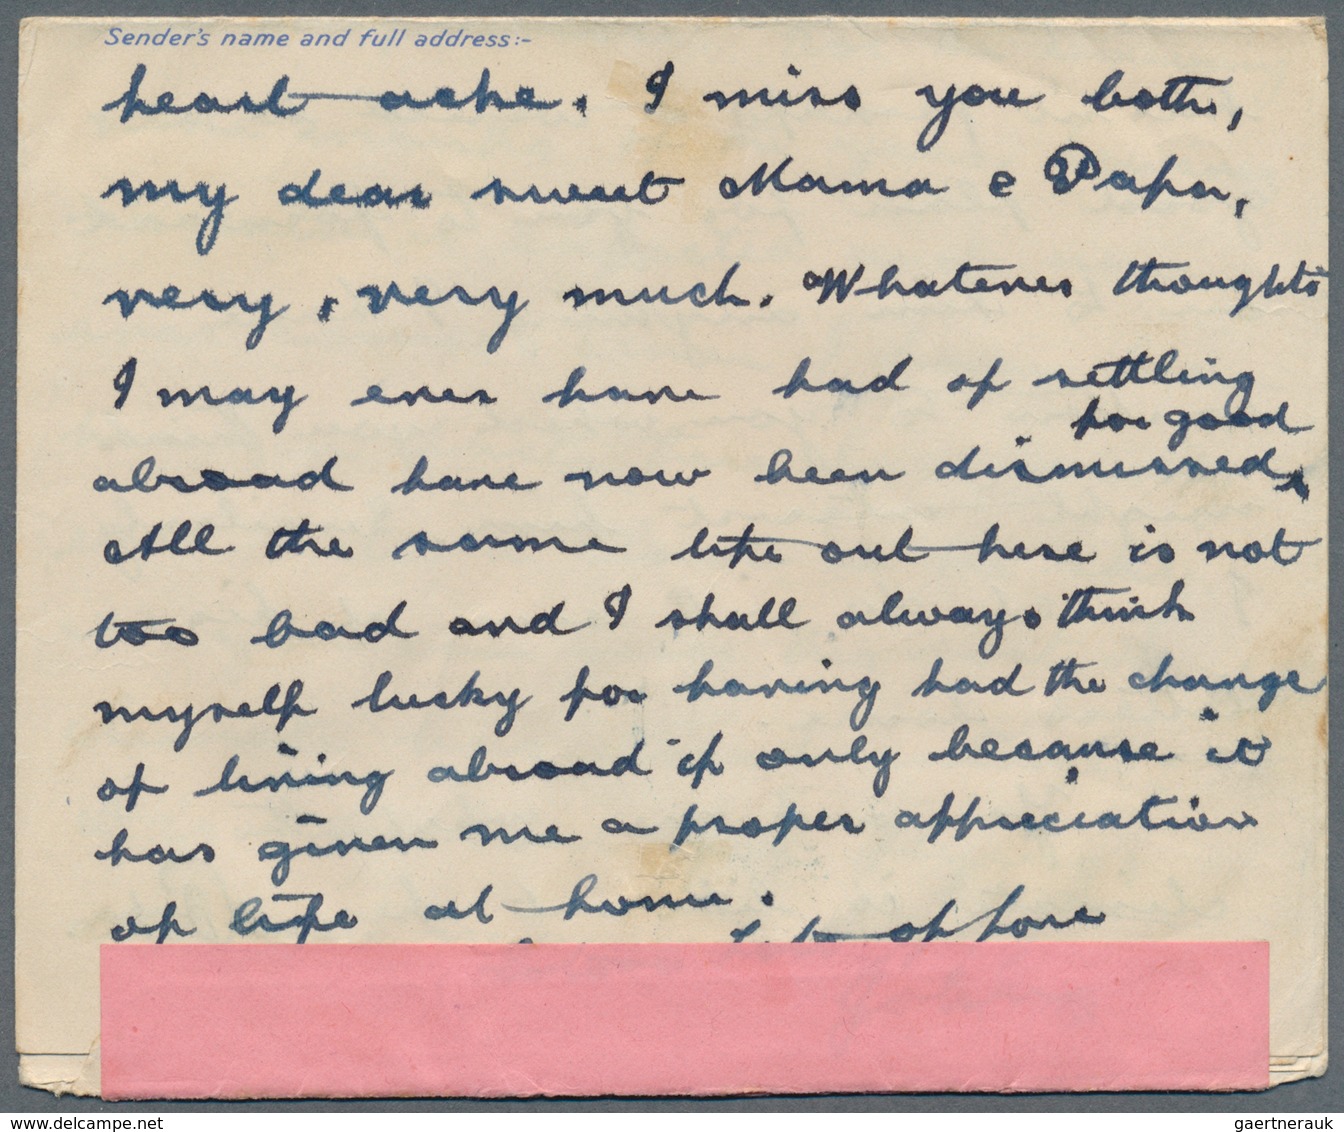 Sender's name and full address:-
heart ache. I miss you both,
my dear sweet Mama & Papa,
very, very much. Whatever thoughts
I may ever have had of settling
for good
abroad have now been dismissed.
All the same life out here is not
too bad and I shall always think
myself lucky for having had the change
of living abroad if only because it
has given me a proper appreciation
of life at home.
of love
www.delcampe.net
gaertnerauk